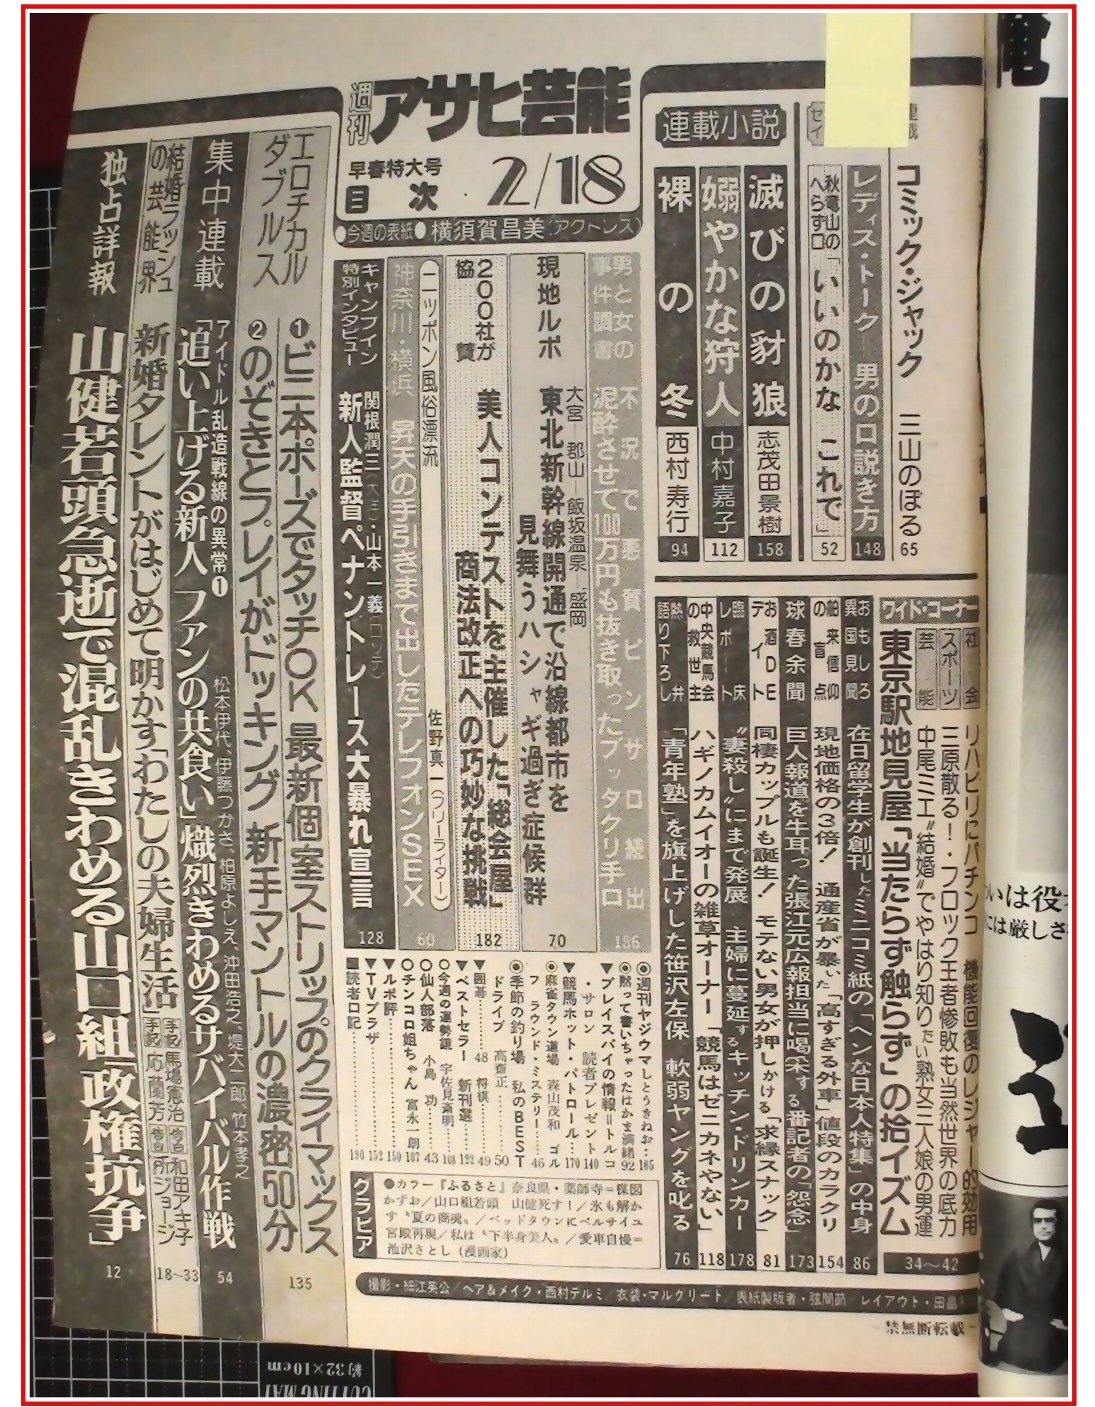 週刊アサヒ芸能
早春特大号
目次
2/18
●今週の表紙●横須賀昌美(アクトレス)
コミック・ジャック 三山のぼる 65
レディス・トーク 男の口説き方 148
秋竜山の
へらず口
「いいのかな これで」 52
連載小説
滅びの豺狼 志茂田景樹 158
嫋やかな狩人 中村嘉子 112
裸の冬 西村寿行 94
ワイド・コーナー
社会 リハビリにパチンコ 機能回復のレジャー的効用
スポーツ 三原散る!・フロック王者惨敗も当然世界の底力
芸能 中尾ミエ“結婚”でやはり知りたい熟女三人娘の男運
東京駅地見屋「当たらず触らず」の拾イズム
34〜42
おもしろ
異国見聞
在日留学生が創刊したミニコミ紙の「ヘンな日本人特集」の中身 86
舶来信仰
の盲点
現地価格の3倍! 通産省が暴いた「高すぎる外車」値段のカラクリ 154
球春余聞 巨人報道を牛耳った張江元広報担当に喝采する番記者の「怨念」 173
お酒DE
デイト
同棲カップルも誕生! モテない男女が押しかける「求縁スナック」 81
臨床
レポート
“妻殺し”にまで発展 主婦に蔓延するキッチン・ドリンカー 178
中央競馬会
の救世主
ハギノカムイオーの雑草オーナー「競馬はゼニカネやない」 118
熱弁
語り下ろし
「青年塾」を旗上げした笹沢左保 軟弱ヤングを叱る 76
男と女の
事件調書
不況で悪質ピンサロ続出
泥酔させて100万円も抜き取ったブッタクリ手口
186
現地ルポ
大宮―郡山―飯坂温泉―盛岡
東北新幹線開通で沿線都市を
見舞うハシャギ過ぎ症候群
70
200社が
協賛
美人コンテストを主催した「総会屋」
商法改正への巧妙な挑戦
182
ニッポン風俗漂流
佐野真一(フリーライター)
神奈川・横浜 昇天の手引きまで出したテレフォンSEX
60
キャンプイン
特別インタビュー
関根潤三(大洋)・山本一義(ロッテ)
新人監督ペナントレース大暴れ宣言
128
◉週刊ヤジウマしとうきねお…165
◉黙って書いちゃったはかま満緒 92
▼プレイスパイの情報=トルコ
・サロン 読者プレゼント 140
▼競馬ホット・パトロール…170
◉麻雀タウン道場 森山茂和 ゴル
フ ラウンド・ミステリー…46
◉季節の釣り場 私のBEST
ドライブ 高齋正…50
▼囲碁…48 将棋…49
▼ベストセラー 新刊選…122
◎今週の運勢鏡 宇佐見斎明…108
◎仙人部落 小島功…43
◎チンコロ姐ちゃん 富永一朗 107
▼ルポ評…150
▼TVプラザ…152
■読者口記…190
グラビア
●カラー『ふるさと』奈良県・薬師寺=楳図
かずお/山口組若頭 山健死す!/氷も解か
す“夏の商魂”/ベッドタウンにベルサイユ
宮殿再現/私は“下半身美人”/愛車自慢=
池沢さとし(漫画家)
撮影・細江英公/ヘア&メイク・西村テルミ/衣装・マルグリート/表紙製版者・弦間節/レイアウト・田島
―禁無断転載―
エロチカル
ダブルス
①ビニ本ポーズでタッチOK 最新個室ストリップのクライマックス
②のぞきとプレイがドッキング 新手マントルの濃密50分
135
集中連載
アイドル乱造戦線の異常❶
松本伊代、伊藤つかさ、柏原よしえ、沖田浩之、堤大二郎、竹本孝之
「追い上げる新人 ファンの共食い」熾烈きわめるサバイバル作戦
54
結婚ラッシュ
の芸能界
新婚タレントがはじめて明かす「わたしの夫婦生活」
手記 馬場憲治 告白 和田アキ子
手記 応蘭芳 告白 所ジョージ
18〜33
独占詳報
山健若頭急逝で混乱きわめる山口組「政権抗争」
12
約32×10cm
CUTTING MAT